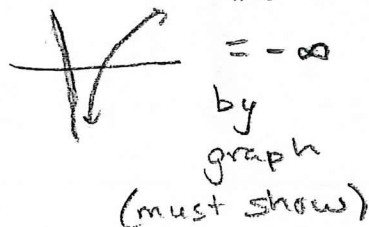 = - ∞
by
graph
(must show)